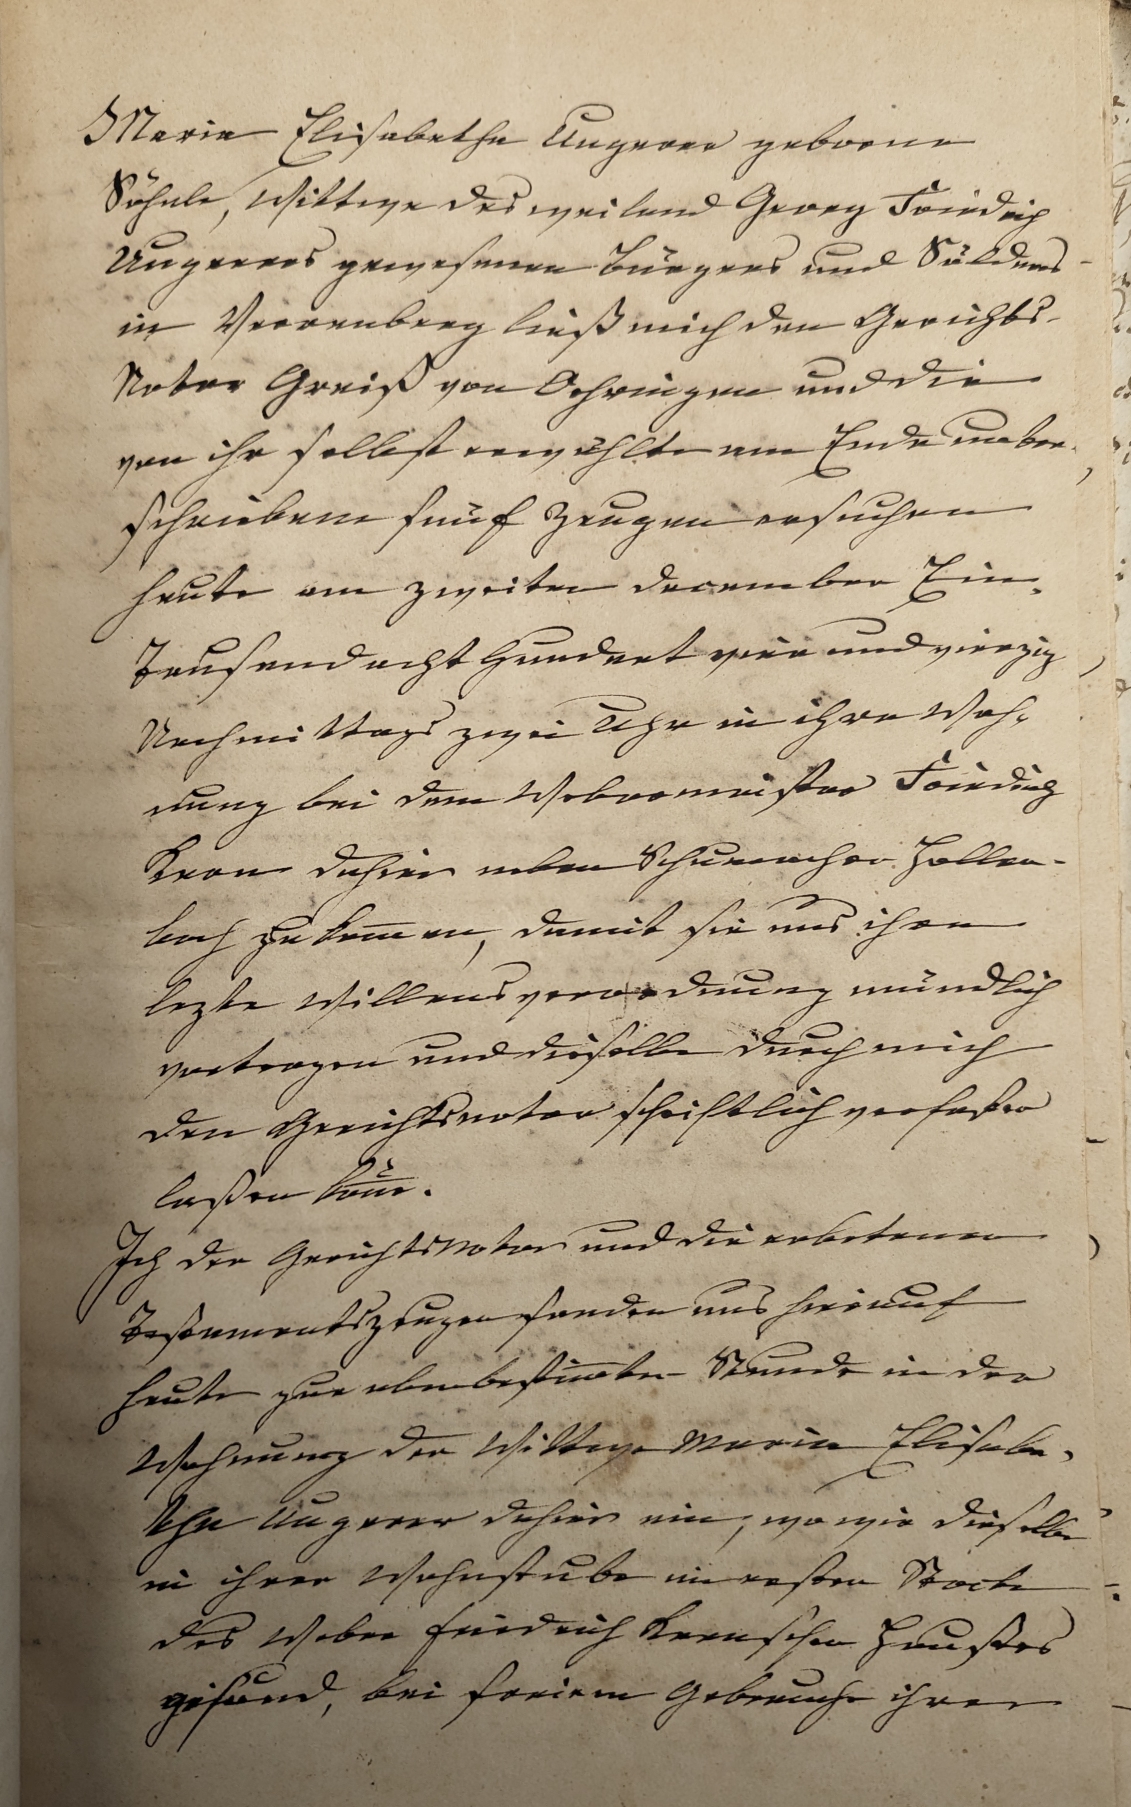 Maria Elisabetha Ungerer geborene
Söhnle, Wittwe des weiland Georg Friedrich
Ungerers gewesenen Bürgers und Söldners
in Verrenberg ließ mich den Gerichts-
Notar Greiß von Oehringen und die
von ihr selbst erwählte am Ende unter-
schriebene fünf Zeugen ersuchen
heute am zweiten December Ein-
Tausend acht Hundert vier und vierzig
Nachmittags zwei Uhr in ihre Woh-
nung bei dem Webermeister Friedrich
Kern dahier neben Schumacher Hollen-
bach zu kommen, damit sie uns ihre
lezte Willensverordnung mündlich
vortragen und dieselbe durch mich
den Gerichtsnotar schriftlich verfaßen
laßen könne.
Ich der Gerichtsnotar und die erbetenen
Testamentszeugen fanden uns hierauf
heute zur obenbestimmten Stunde in der
Wohnung der Wittwe Maria Elisabe-
tha Ungerer dahier ein, wo wir dieselbe
in ihrer Wohnstube im ersten Stocke
des Weber Friedrich Kernschen Haußes
gesund, bei freiem Gebrauche ihrer